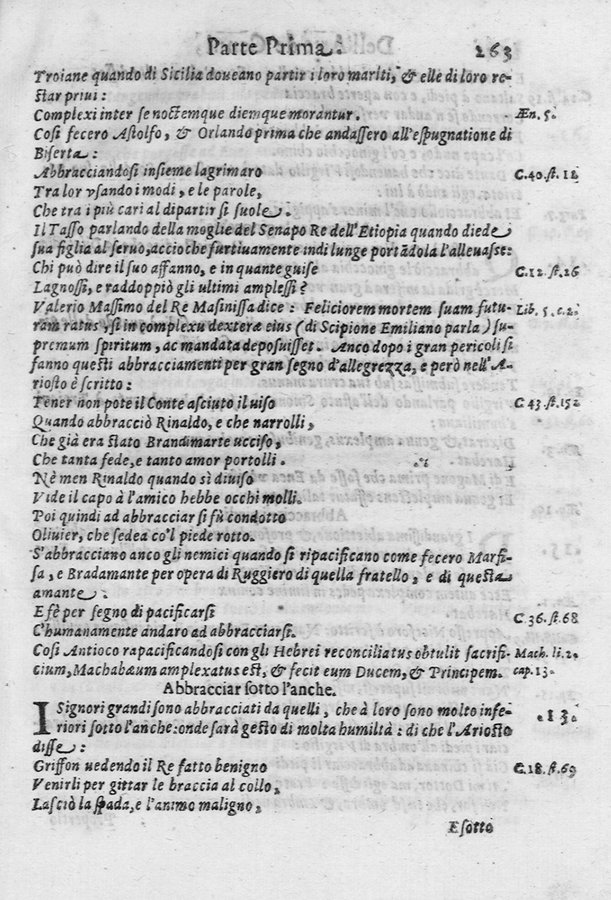 Parte Prima. 263
Troiane quando di Sicilia doueano partir i loro mariti, & elle di loro re-
star priui:
Complexi inter se noctemque diemque morantur. Æn. 5.
Cosi fecero Astolfo, & Orlando prima che andassero all'espugnatione di
Biserta:
Abbracciandosi insieme lagrimaro C.40.st.12
Tra lor vsando i modi, e le parole,
Che tra i più cari al dipartir si suole.
Il Tasso parlando della moglie del Senapo Re dell'Etiopia quando diede
sua figlia al seruo, accioche furtiuamente indi lunge portādola l'alleuasse:
Chi può dire il suo affanno, e in quante guise C.12.st.26
Lagnossi, e raddoppiò gli ultimi amplessi?
Valerio Massimo del Re Masinissa dice: Feliciorem mortem suam futu- Lib. 5. c.2.
ram ratus, si in complexu dexteræ eius (di Scipione Emiliano parla) su-
premum spiritum, ac mandata deposuisset. Anco dopo i gran pericoli si
fanno questi abbracciamenti per gran segno d'allegrezza, e però nell'A-
riosto è scritto:
Tener non pote il Conte asciuto il uiso C.43.st.152
Quando abbracciò Rinaldo, e che narrolli,
Che già era stato Brandimarte ucciso,
Che tanta fede, e tanto amor portolli.
Nè men Rinaldo quando sì diuiso
Vide il capo à l'amico hebbe occhi molli.
Poi quindi ad abbracciar si fù condotto
Oliuier, che sedea co'l piede rotto.
S'abbracciano anco gli nemici quando si ripacificano come fecero Marfi-
sa, e Bradamante per opera di Ruggiero di quella fratello, e di questa
amante.
E fè per segno di pacificarsi C.36.st.68
C'humanamente andaro ad abbracciarsi.
Cosi Antioco rapacificandosi con gli Hebrei reconciliatus obtulit sacrifi- Mach. li.2.
cium, Machabæum amplexatus est, & fecit eum Ducem, & Principem. cap.13.
Abbracciar sotto l'anche.
I Signori grandi sono abbracciati da quelli, che à loro sono molto infe- .13.
riori sotto l'anche: onde sarà gesto di molta humiltà: di che l'Ariosto
disse:
Griffon uedendo il Re fatto benigno C.18.st.69
Venirli per gittar le braccia al collo,
Lasciò la spada, e l'animo maligno,
E sotto